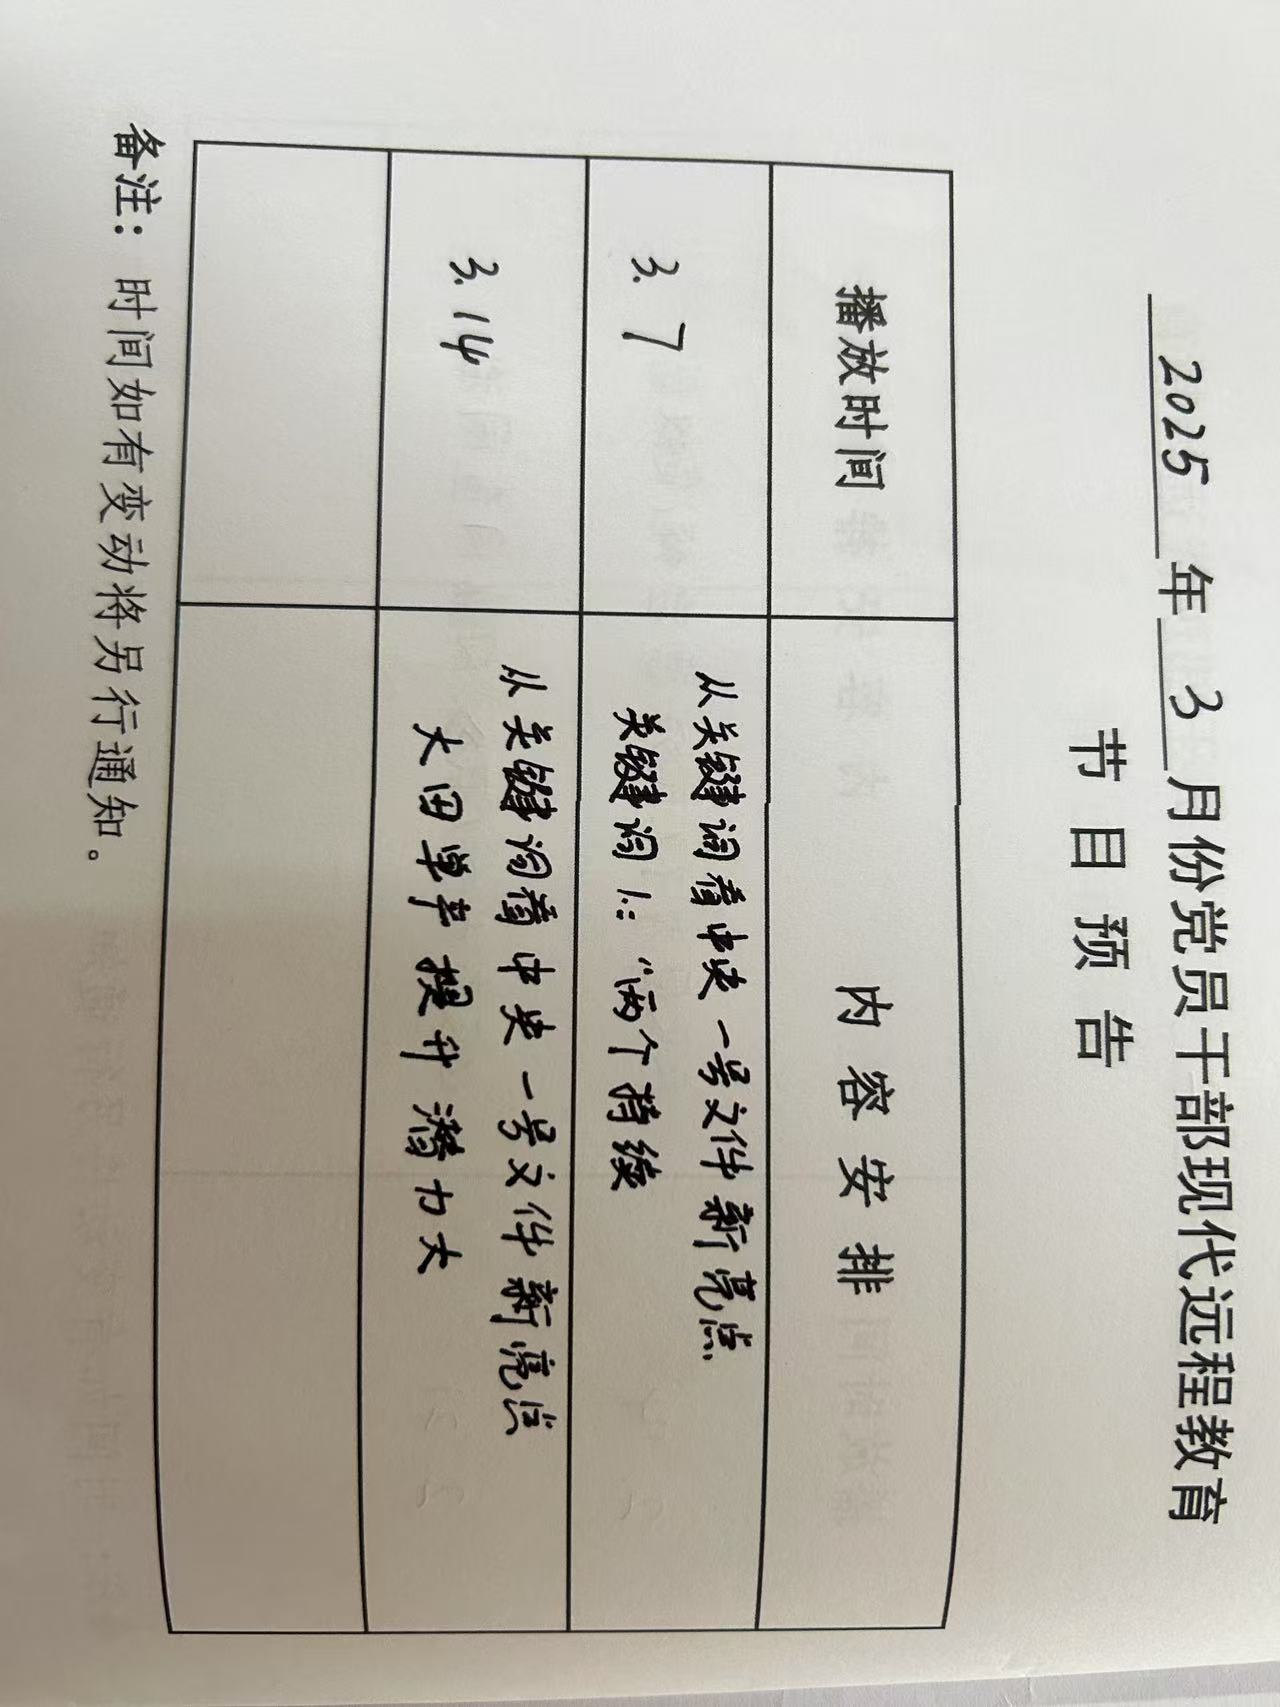 2025年3月份党员干部现代远程教育
节目预告
播放时间 内容安排
3.7 从关键词看中央一号文件新亮点
关键词1.:“两个持续
3.14 从关键词看中央一号文件新亮点
大田单产提升潜力大
备注：时间如有变动将另行通知。